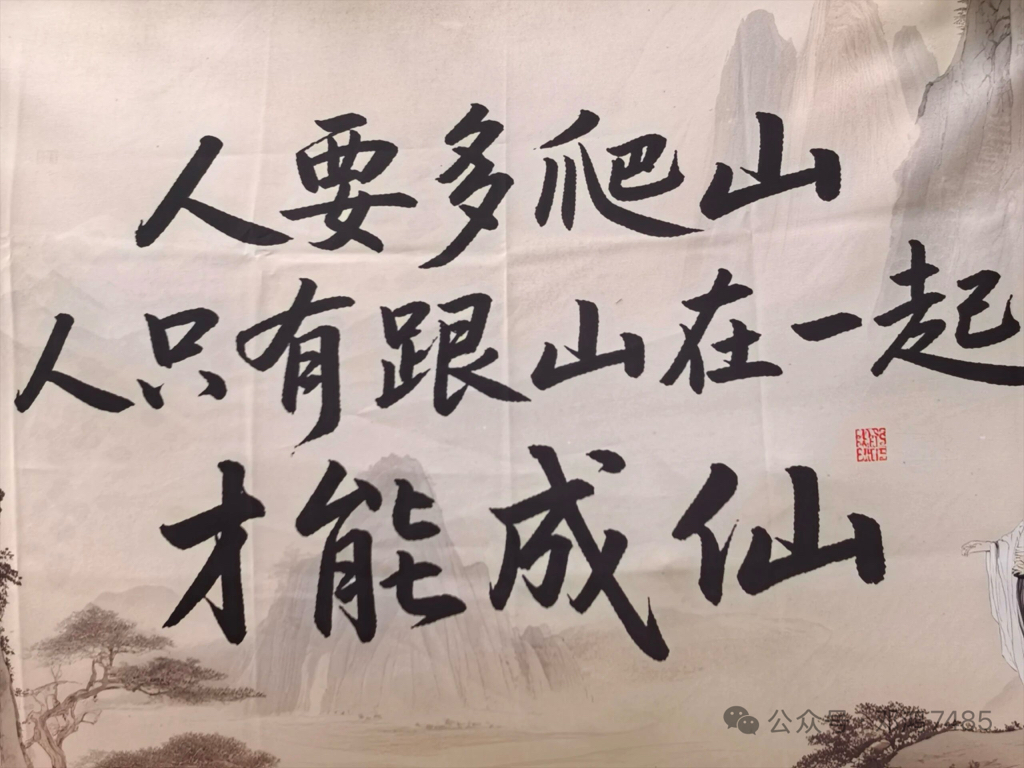 人要多爬山
人只有跟山在一起
才能成仙
公众号
7485